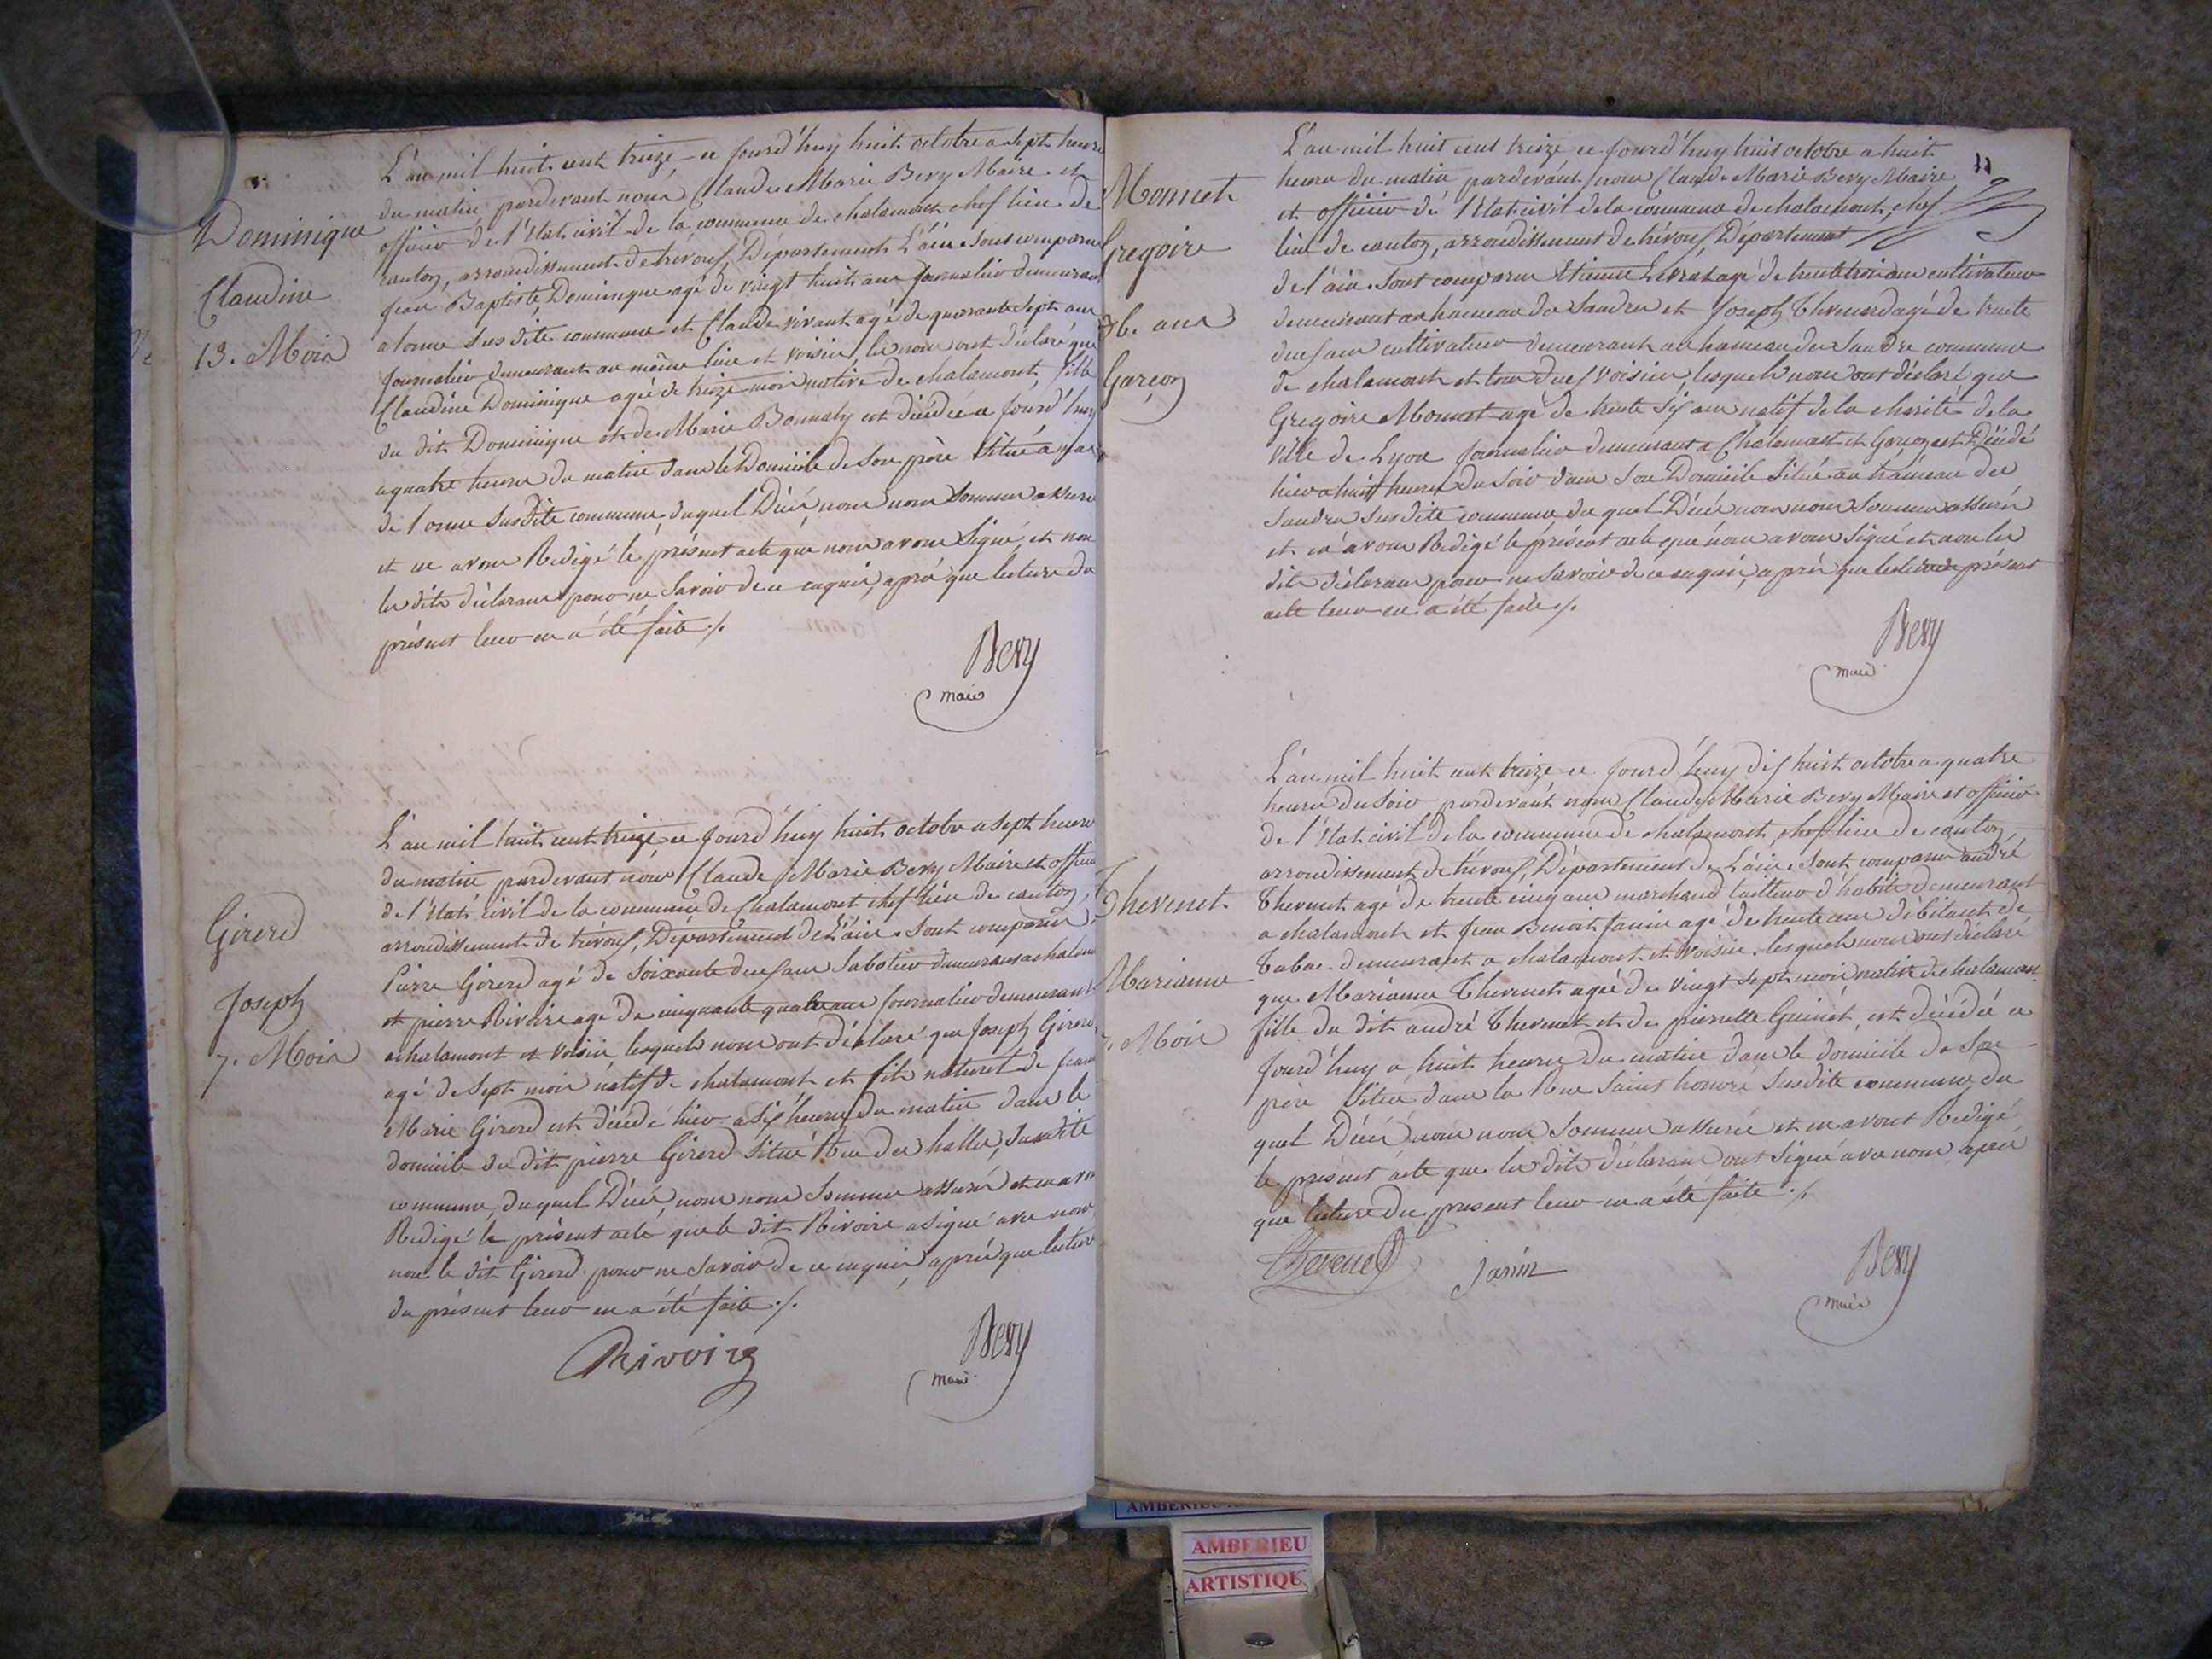 Dominique
Claudine
13. Mois
L'an mil huit cent treize ce jourd'huy huit octobre a sept heures
du matin pardevant nous Claude Marie Bevy Maire et
officier de l'Etat civil de la commune de chalamont chef lieu de
canton, arrondissement de trévoux, Département L'ain sont comparus
Jean Baptiste Dominique agé de vingt huit ans journalier demeurant
a lorme sus dite commune et Claude vivant agé de quarante sept ans
journalier demeurant au même lieu et voisin, les nous ont déclaré que
Claudine Dominique agée de treize mois native de chalamont, fille
du dit Dominique et de Marie Bonnaty est décédée ce jourd'huy
a quatre heures du matin dans le Domicile de son père situé a
de lorme susdite commune, duquel Décés nous nous sommes assuré
et en avons Rédigé le présent acte que nous avons signé, et non
les dits déclarans pour ne savoir de ce enquis, après que lecture du
présent leur en a été faite ./.
Bevy
maire
Girerd
Joseph
7. Mois
L'an mil huit cent treize ce jourd'huy huit octobre a sept heures
du matin pardevant nous Claude Marie Bevy Maire et officier
de l'Etat civil de la commune de Chalamont chef lieu de canton,
arrondissement de trévoux, Département de L'ain. sont comparus
Pierre Girerd agé de soixante deux ans sabotier demeurant a chalamont
et pierre Rivoire agé de cinquante quatre ans journalier demeurant
a chalamont et voisin, lesquels nous ont déclaré que Joseph Girerd
agé de sept mois natif de chalamont et fils naturel de jeanne
Marie Girerd est décédé hier a six heures du matin dans le
domicile du dit pierre Girerd situé Rue des halles, susdite
commune, duquel Décés nous nous sommes assurés et en avons
Rédigé le présent acte que le dit Rivoire a signé avec nous
non le dit Girerd pour ne savoir de ce enquis, après que lecture
du présent leur en a été faite ./.
Rivoire
Bevy
maire
Monnet
Gregoire
36. ans
Garçon
L'an mil huit cent treize ce jourd'huy huit octobre a huit
heures du matin pardevant nous Claude Marie Bevy Maire
et officier de l'Etat civil de la commune de chalamont, chef
lieu de canton, arrondissement de trévoux, Département
de l'ain. sont comparus Etienne Levrat agé de trente trois ans cultivateur
demeurant au hameau du Sandre et Joseph Thevenard agé de trente
deux ans cultivateur demeurant au hameau du Sandre commune
de chalamont et tous deux voisins, lesquels nous ont déclaré que
Gregoire Monnet agé de trente six ans natif de la charité de la
ville de Lyon journalier demeurant a Chalamont et Garçon est Décédé
hier a huit heures du soir dans son Domicile situé au hameau des
Sandres susdite commune du quel Décés nous nous sommes assurés
et en avons Rédigé le présent acte que nous avons signé et non les
dits déclarans pour ne savoir de ce enquis, après que lecture du présent
acte leur en a été faite ./.
Bevy
maire
Thevenet
Marianne
7. Mois
L'an mil huit cent treize ce jourd'huy dix huit octobre a quatre
heures du soir pardevant nous Claude Marie Bevy Maire et officier
de l'Etat civil de la commune de chalamont, chef lieu de canton,
arrondissement de trévoux, Département de L'ain. sont comparus andré
Thevenet agé de trente cinq ans marchand tailleur d'habits demeurant
a chalamont et jean Benoit Janin agé de trente ans débitant de
tabac demeurant a chalamont et voisin. lesquels nous ont déclaré
que Marianne Thevenet agée de vingt sept mois native de chalamont
fille du dit andré Thevenet et de pierrette Guinet, est décédée ce
jourd'huy a huit heures du matin dans le domicile de son
père situé dans la Rue saint honoré susdite commune du
quel Décés nous nous sommes assurés et en avons Rédigé
le présent acte que les dits déclarans ont signé avec nous après
que lecture du présent leur en a été faite ./.
Thevenet
Janin
Bevy
maire
AMBERIEU
ARTISTIQU